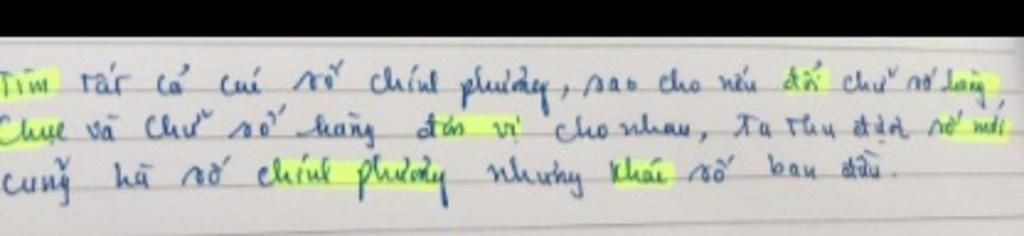 Tìm tất cả các số chính phương, sao cho nếu đổi chữ số hàng
chục và chữ số hàng đơn vị cho nhau, ta thu được số mới
cũng là số chính phương nhưng khác số ban đầu.